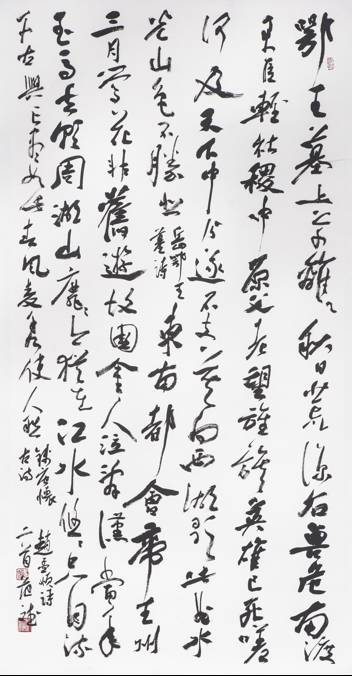 鄂王墓上草離〻秋日荒涼石獸危南渡
君臣輕社稷中原父老望旌旗英雄已死嗟
何及天下中分遂不支莫向西湖歌此曲水
光山色不勝悲
岳鄂王
墓詩
東南都會帝王州
三月鶯花非舊遊故國金人泣辭漢當年
玉馬去朝周湖山靡〻今猶在江水悠〻只自流
千古興亡盡如此春風麥秀使人愁
錢唐懷
古詩
趙孟頫詩
二首